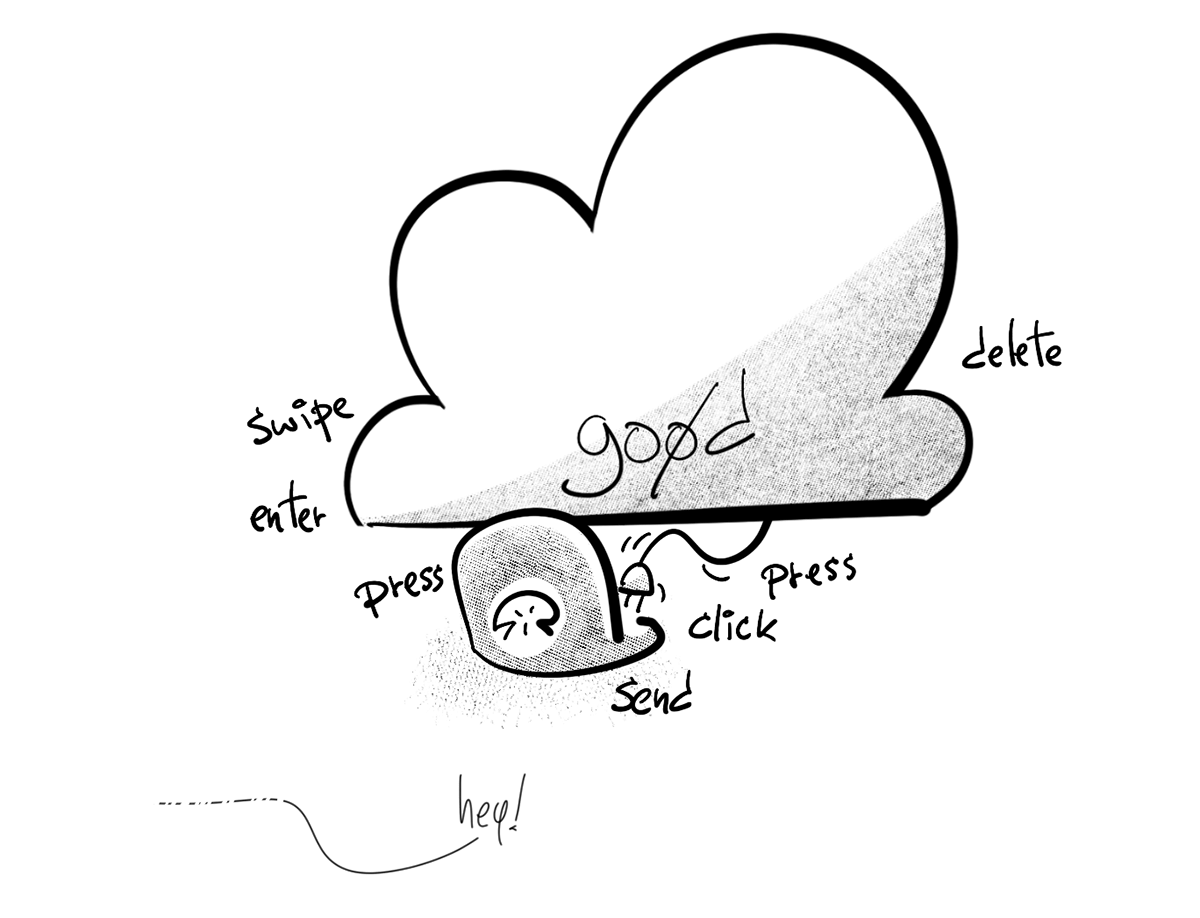 delete
swipe
goød
enter
press
press
click
send
hey!